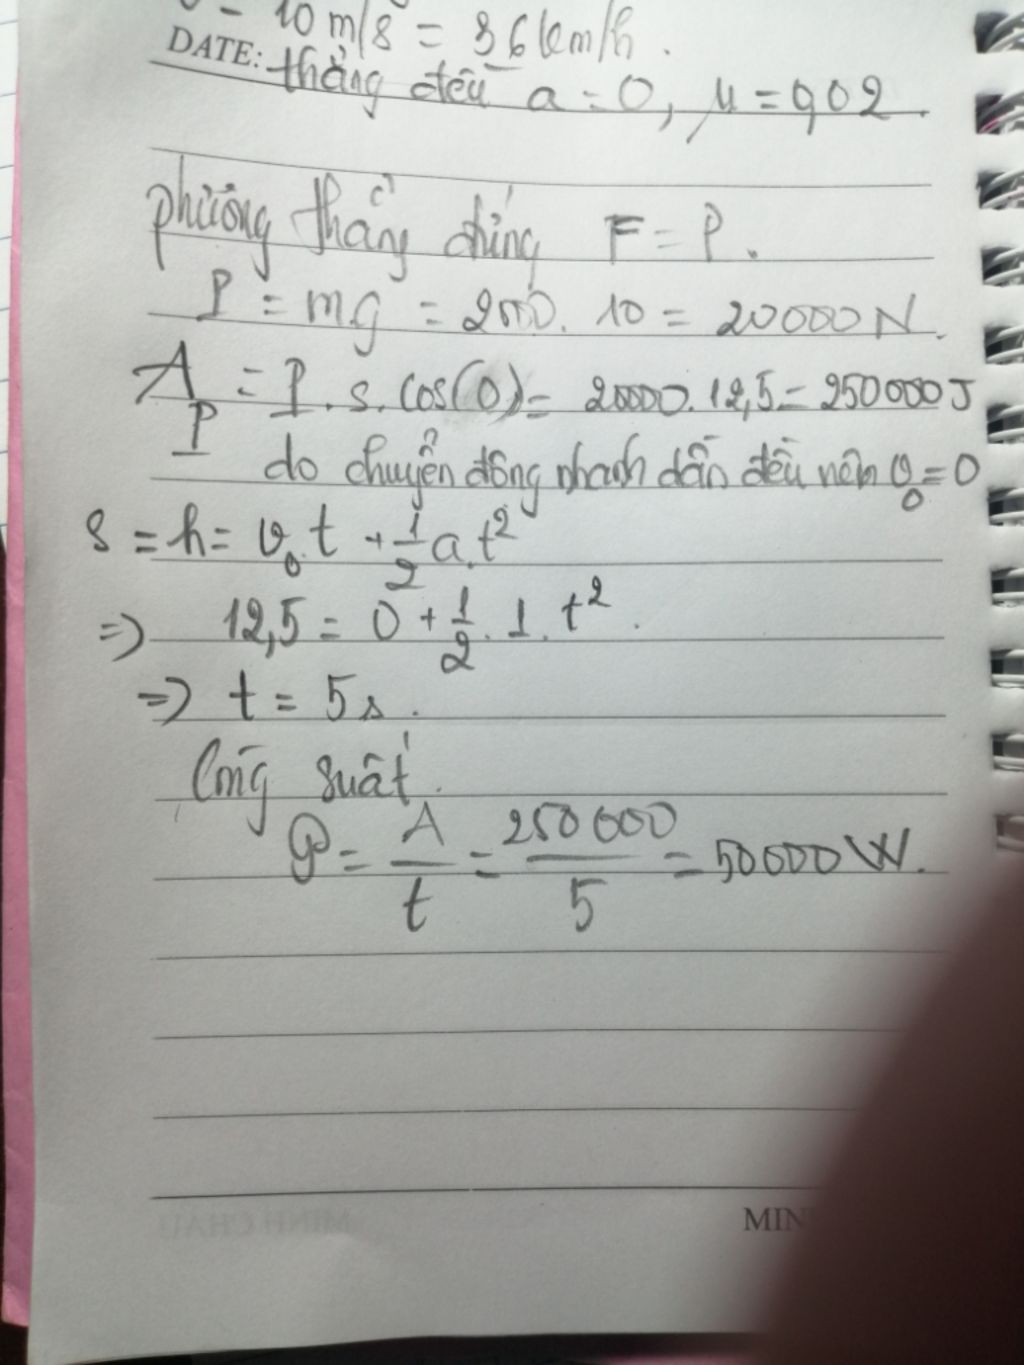 10 m/s = 36 km/h.
DATE: thẳng đều a = 0, μ = 0,02.
phương thẳng đứng F = P.
P = mg = 2000. 10 = 20000 N.
A_P = P. s. cos(0) = 20000. 12,5 = 250000 J
do chuyển động nhanh dần đều nên v₀ = 0
s = h = v₀.t + 1/2 a.t²
=> 12,5 = 0 + 1/2. 1. t².
=> t = 5s.
Công suất.
P = A/t = 250000/5 = 50000 W.
MINH CHAU